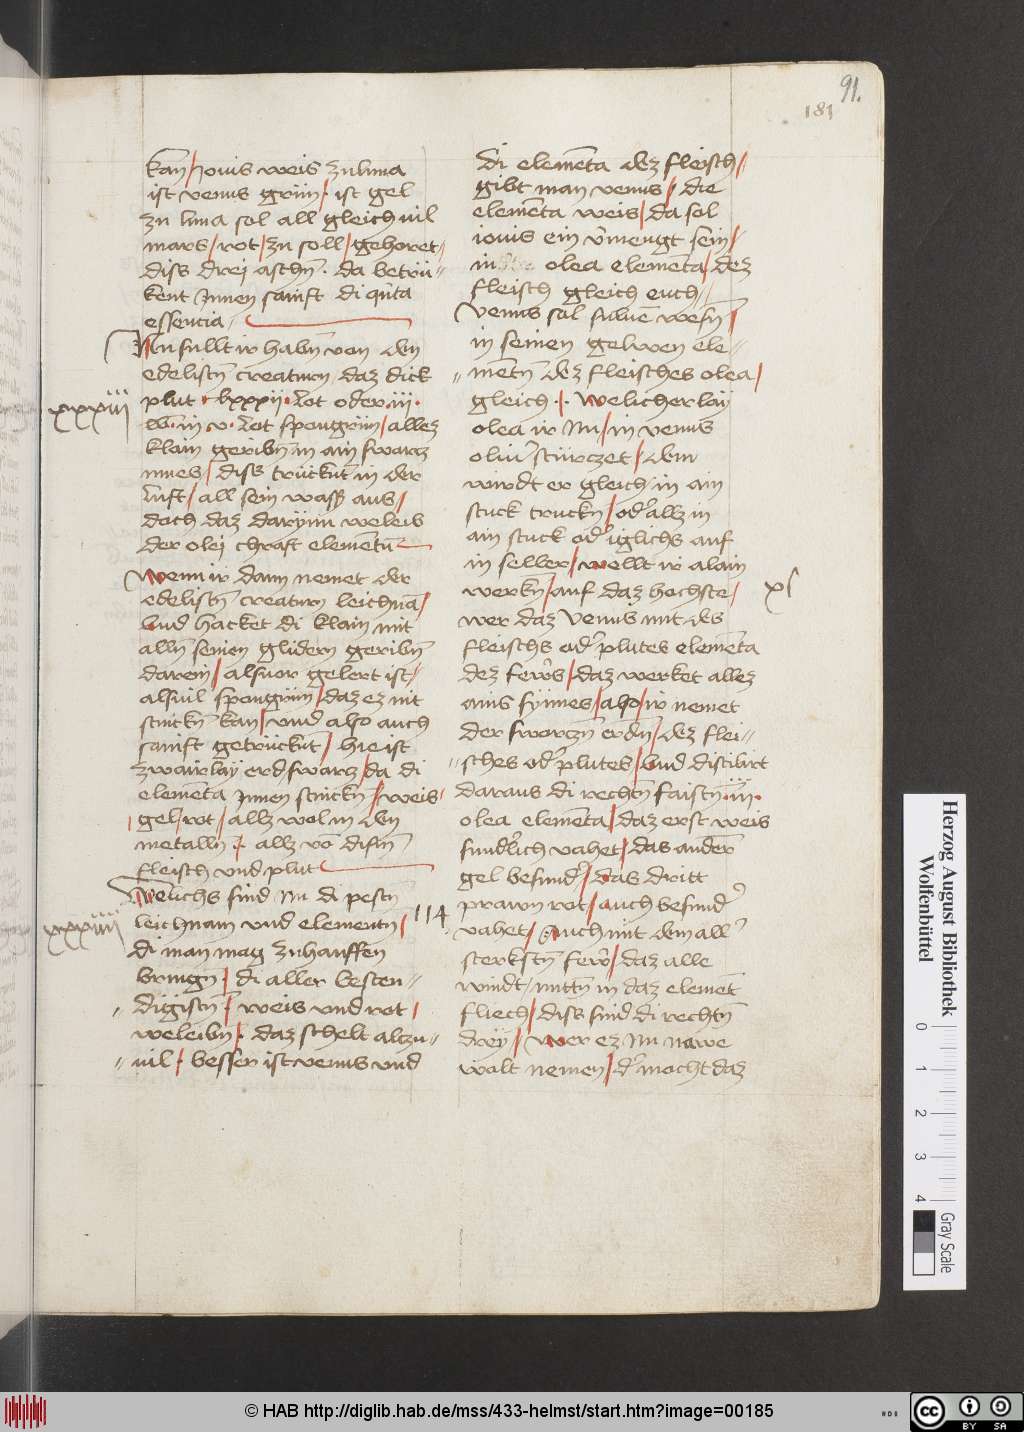 91.
181
kan̄/ Jouis weis zu luna
ist venus grün/ · ist gel
zu luna sol all gleich uil
mars/ rot/ zu soll/ gehoret-
diss drej aschn̄ · da betrü-
kent Jnnen sanft di qn̄ta
essencia
Nu sullt ir habn̄ von den
edelistn̄ creaturn / daz dick
xxxiij
plut · lxxxij · Lot oder · iij ·
lb · in v · Lot spongrün/ allez
klain geribn̄ in ain swarcz
mues/ diss trückn̄t in der
luft/ all sein wass̄ aus/
doch daz darynn weleib
der olej chraft elementū
Wenn ir dann nemet der
edelistn̄ creaturn leichnā/
vnd hacket di klain mit
alln̄ seinen glidern geribn̄
darein/ alsuor gelert ist/
alsuil spongrün/ daz ez nit
stinckn̄ kan/ vnd also auch
sanift getrückn̄t/ hie ist
zwairlaÿ erd swarcz/ da di
elemēta Jnnen stinckn̄/ weis
/ gel/ rot/ allz wol in den
metalln̄ · allz vō dism̄
fleisch vnd plut
Welichs sind Nu di pestn̄
xxxiiij
leichnam vnd elementn̄/
114
di man mag zuhauffen
bringn̄/ di aller besten-
digistn̄/ weis vnd rot/
weleibn̄/ · daz schelt altzu-
uil/ · besser ist venus vnd
di elemēta dez fleisch/
gibt man venus/ die
elemēta weis/ da sol
iouis ein v̄mengt sein/
in olea elemēta/ dez
fleisch gleich euch/
Venus sol suben wesn̄/
in seinen gelwen ele-
mētn̄ dez fleisches olea/
gleich · / · Welicherlaÿ
olea ir Nu/ in venus
oliu̅ stürczet/ dem
wirdt er gleich/ in ain
stuck truckn̄/ od̄ allz in
ain stuck od̄ iglichs auf
in seller/ wellt ir alain
xl
werkn̄/ auf daz hochste/
wer daz Venus mit des
fleischs od̄ plutes elemēta
dez fewrs/ daz werket allez
ains synnes/ also/ ir nemet
der sworczn̄ erdn̄/ dez flei-
sches od̄ plutes/ vnd distilirt
daraus di rechtn̄ faistn̄ · iij ·
olea elemēta/ daz erst weis
sundlich vahet/ das ander
gel besund̄/ das dritt
prawn rot/ auch besund̄
vahet/ Auch mit dem all
sterkstn̄ fewr/ daz alle
windt/ mittn̄ in daz elemēt
fliech/ diss sind di rechtn̄
dreÿ/ Wer ez Nu nawe
wolt nemen/ d̄ mocht daz
Herzog August Bibliothek
Wolfenbüttel
0 1 2 3 4
Gray Scale
© HAB http://diglib.hab.de/mss/433-helmst/start.htm?image=00185
HAB
cc BY SA